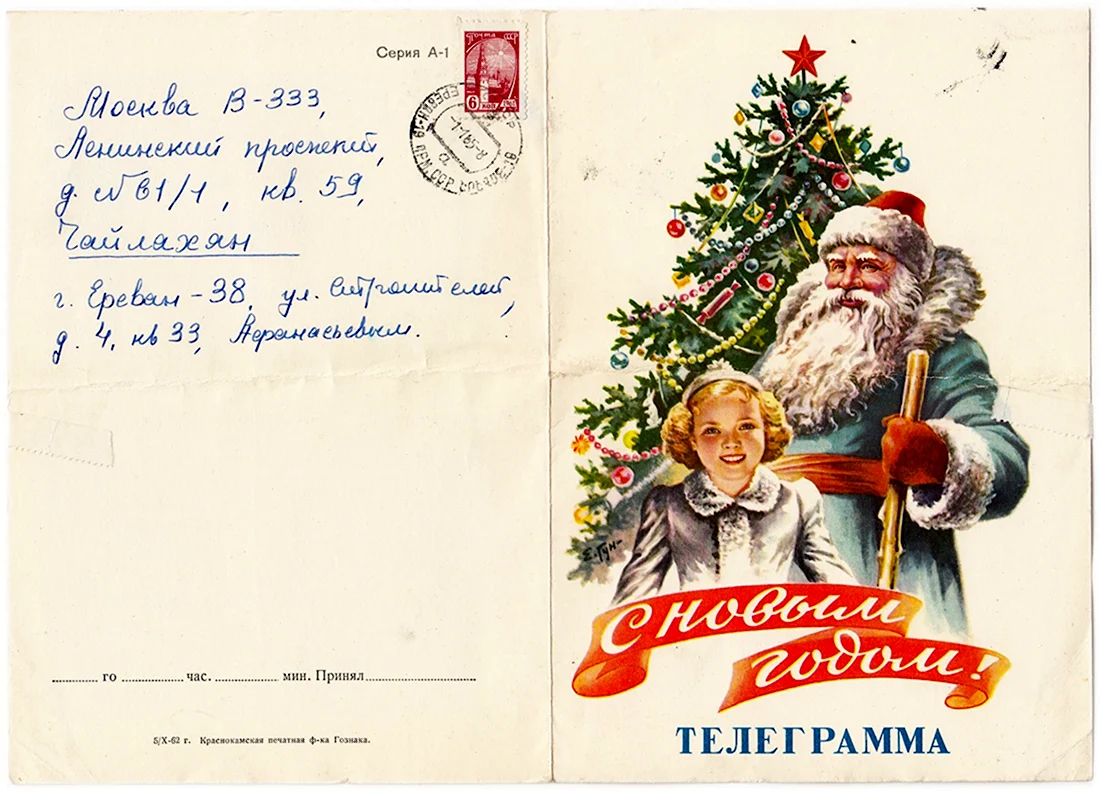 Серия А-1
Почта СССР
6 коп 1961
ЕРЕВАН-19 АРМ.ССР
Москва В-333,
Ленинский проспект,
д. № 61/1, кв. 59,
Чайлахян
г. Ереван-38, ул. Строителей,
д. 4, кв 33, Афанасьевым.
го час. мин. Принял
5/X-62 г. Краснокамская печатная ф-ка Гознака.
Е. Гун-
С новым
годом!
ТЕЛЕГРАММА